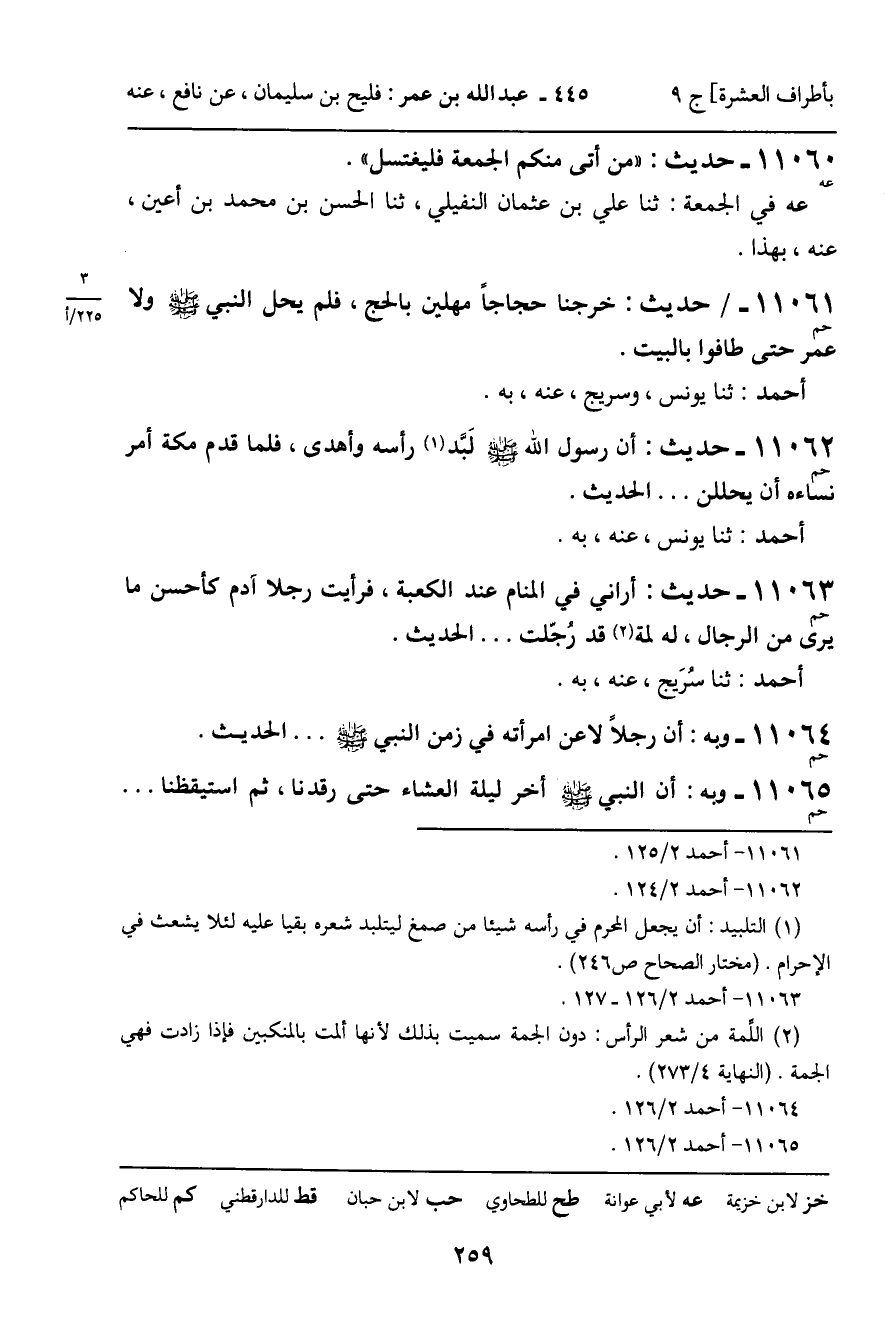 بأطراف العشرة] ج ٩ ٤٤٥ ـ عبدالله بن عمر : فليح بن سليمان ، عن نافع ، عنه
١١٠٦٠ ـ حديث : «من أتى منكم الجمعة فليغتسل» .
عه
عه في الجمعة : ثنا علي بن عثمان النفيلي ، ثنا الحسن بن محمد بن أعين ،
عنه ، بهذا .
١١٠٦١ ـ / حديث : خرجنا حجاجاً مهلين بالحج ، فلم يحل النبي ﷺ ولا
٣
٢٢٥/أ
حم
عمر حتى طافوا بالبيت .
أحمد : ثنا يونس ، وسريج ، عنه ، به .
١١٠٦٢ ـ حديث : أن رسول الله ﷺ لَبَّد(١) رأسه وأهدى ، فلما قدم مكة أمر
حم
نساءه أن يحللن ... الحديث .
أحمد : ثنا يونس ، عنه ، به .
١١٠٦٣ ـ حديث : أراني في المنام عند الكعبة ، فرأيت رجلا آدم كأحسن ما
حم
يرى من الرجال ، له لمة(٢) قد رُجّلت ... الحديث .
أحمد : ثنا سُرَيج ، عنه ، به .
١١٠٦٤ ـ وبه : أن رجلاً لاعن امرأته في زمن النبي ﷺ ... الحديث .
حم
١١٠٦٥ ـ وبه : أن النبي ﷺ أخر ليلة العشاء حتى رقدنا ، ثم استيقظنا ...
حم
١١٠٦١- أحمد ١٢٥/٢ .
١١٠٦٢- أحمد ١٢٤/٢ .
(١) التلبيد : أن يجعل المحرم في رأسه شيئا من صمغ ليتلبد شعره بقيا عليه لئلا يشعث في
الإحرام . (مختار الصحاح ص٢٤٦) .
١١٠٦٣- أحمد ١٢٦/٢ ـ ١٢٧ .
(٢) اللِّمة من شعر الرأس : دون الجمة سميت بذلك لأنها ألمت بالمنكبين فإذا زادت فهي
الجمة . (النهاية ٢٧٣/٤) .
١١٠٦٤- أحمد ١٢٦/٢ .
١١٠٦٥- أحمد ١٢٦/٢ .
خز لابن خزيمة عه لأبي عوانة طح للطحاوي حب لابن حبان قط للدارقطني كم للحاكم
٢٥٩